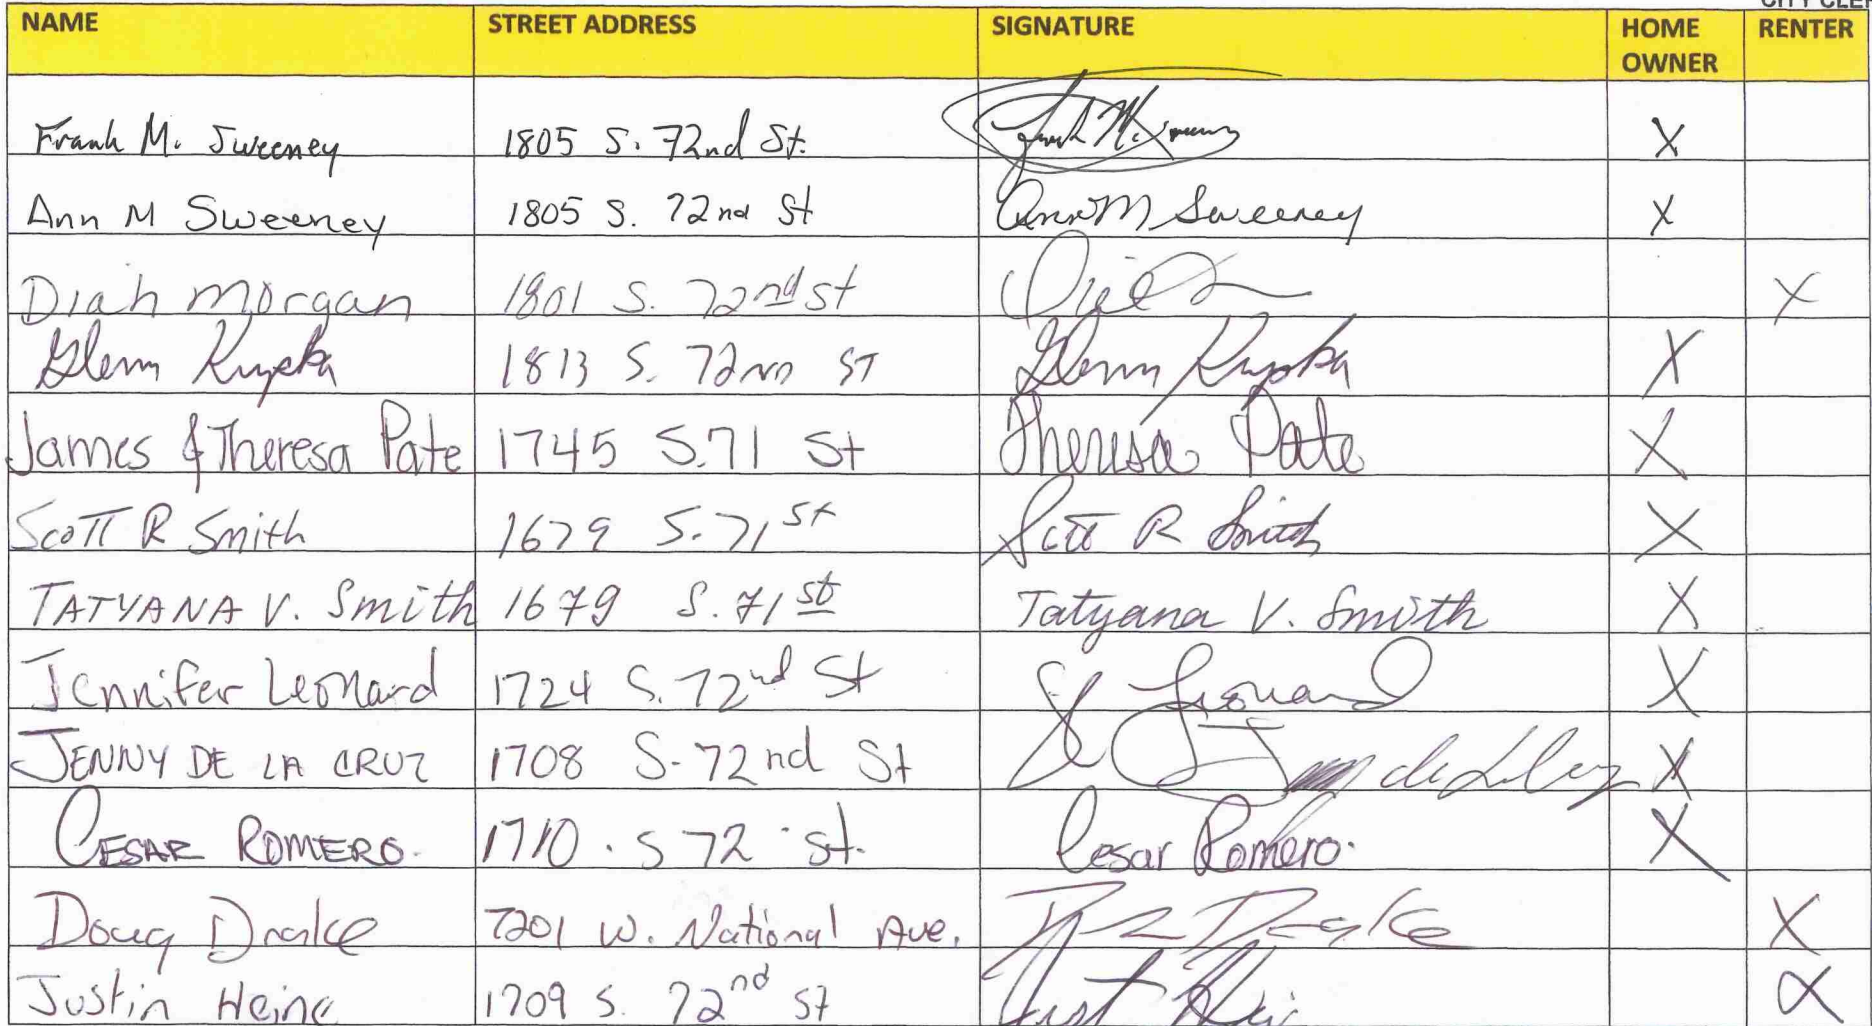 CITY CLER
NAME STREET ADDRESS SIGNATURE HOME OWNER RENTER
Frank M. Sweeney 1805 S. 72nd St. Frank M. Sweeney X
Ann M Sweeney 1805 S. 72nd St Ann M Sweeney X
Diah Morgan 1801 S. 72nd st X
Glenn 1813 S. 72nd ST Glenn X
James & Theresa Pate 1745 S. 71 St Theresa Pate X
Scott R Smith 1679 S. 71 st Scott R Smith X
TATYANA V. Smith 1679 S. 71 st Tatyana V. Smith X
Jennifer Leonard 1724 S. 72nd St J Leonard X
JENNY DE LA CRUZ 1708 S. 72nd St X
CESAR ROMERO. 1710 . S 72 st. Cesar Romero. X
Doug Drake 7201 W. National Ave. Drake X
Justin Heine 1709 S. 72nd St X